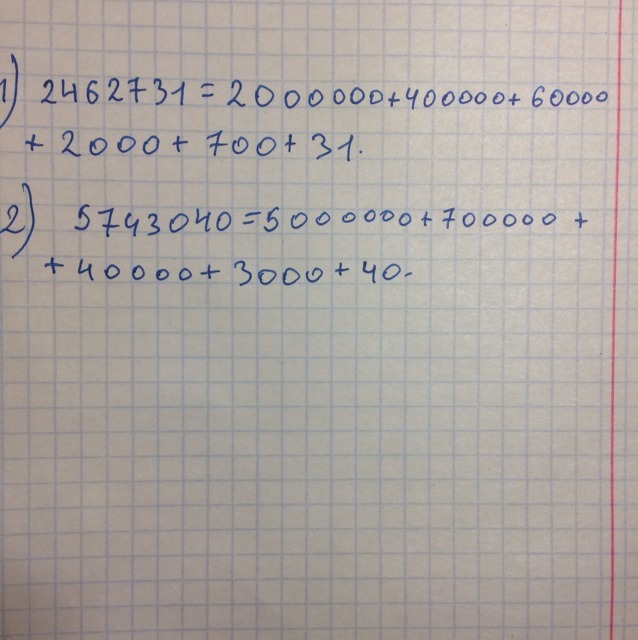 1) 2462731 = 2000000+400000+ 60000
+ 2000 + 700 + 31.
2) 5743040 = 5000000 + 700000 +
+ 40000 + 3000 + 40.